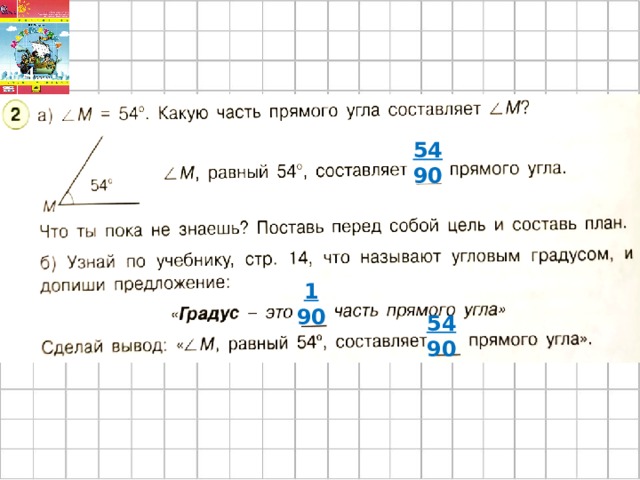 2 а) ∠М = 54°. Какую часть прямого угла составляет ∠М?
54
∠М, равный 54°, составляет 90 прямого угла.
54°
М
Что ты пока не знаешь? Поставь перед собой цель и составь план.
б) Узнай по учебнику, стр. 14, что называют угловым градусом, и
допиши предложение:
1
«Градус – это 90 часть прямого угла»
54
Сделай вывод: «∠М, равный 54°, составляет 90 прямого угла».